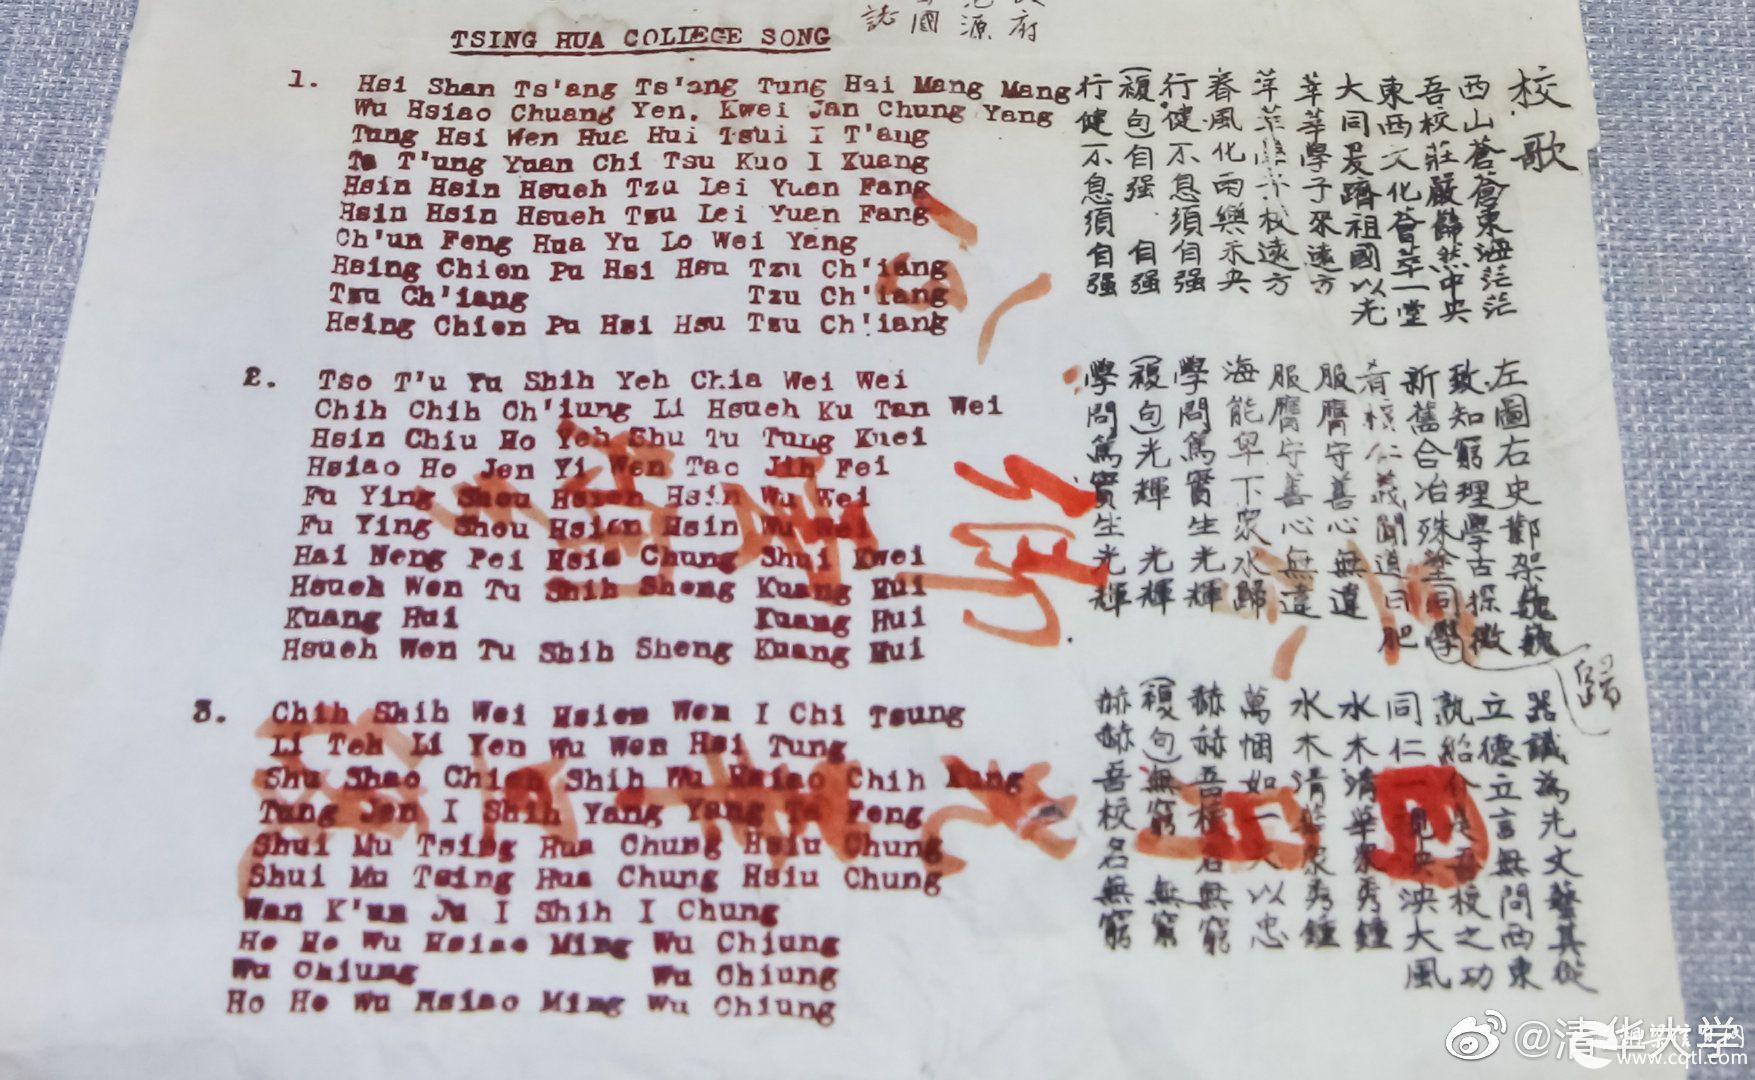 誌 國 源 府
TSING HUA COLLEGE SONG
1. Hsi Shan Ts'ang Ts'ang Tung Hai Mang Mang
Wu Hsiao Chuang Yen. Kwei Jan Chung Yang
Tung Hsi Wen Hua Hui Tsui I T'ang
Ta T'ung Yuan Chi Tsu Kuo I Kuang
Hsin Hsin Hsueh Tzu Lei Yuen Fang
Hsin Hsin Hsueh Tzu Lei Yuen Fang
Ch'un Feng Hua Yu Lo Wei Yang
Hsing Chien Pu Hsi Hsu Tzu Ch'iang
Tzu Ch'iang Tzu Ch'iang
Hsing Chien Pu Hsi Hsu Tzu Ch'iang
2. Tso T'u Yu Shih Yeh Chia Wei Wei
Chih Chih Ch'iung Li Hsueh Ku Tan Wei
Hsin Chiu Ho Yeh Shu Tu Tung Kuei
Hsiao Ho Jen Yi Wen Tao Jih Fei
Fu Ying Shou Hsien Hsin Wu Wei
Fu Ying Shou Hsien Hsin Wu Wei
Hai Neng Pei Hsia Chung Shui Kwei
Hsueh Wen Tu Shih Sheng Kuang Hui
Kuang Hui Kuang Hui
Hsueh Wen Tu Shih Sheng Kuang Hui
3. Chih Shih Wei Hsien Wen I Chi Tsung
Li Teh Li Yen Wu Wen Hsi Tung
Shu Shao Chieh Shih Wu Hsiao Chih Kung
Tung Jen I Shih Yang Yang Ta Feng
Shui Mu Tsing Hua Chung Hsiu Chung
Shui Mu Tsing Hua Chung Hsiu Chung
Wan K'un Ju I Shih I Chung
Ho Ho Wu Hsiao Ming Wu Chiung
Wu Chiung Wu Chiung
Ho Ho Wu Hsiao Ming Wu Chiung
校歌
西山蒼蒼東海茫茫
吾校莊嚴巋然中央
東西文化薈萃一堂
大同爰躋祖國以光
莘莘學子來遠方
莘莘學子來遠方
春風化雨樂未央
行健不息須自强
(複句自强 自强
行健不息須自强
左圖右史鄴架巍巍
致知窮理學古探微
新舊合冶殊塗同學
歸
肴核仁義聞道日肥
服膺守善心無違
服膺守善心無違
海能卑下眾水歸
學問篤實生光輝
(複句光輝 光輝
學問篤實生光輝
器識為先文藝其從
立德立言無問西東
孰紹介是吾校之功
同仁一視泱泱大風
水木清華眾秀鍾
水木清華眾秀鍾
萬悃如一矢以忠
赫赫吾校名無窮
(複句無窮 無窮
赫赫吾校名無窮
@清华大学
www.cqtl.com